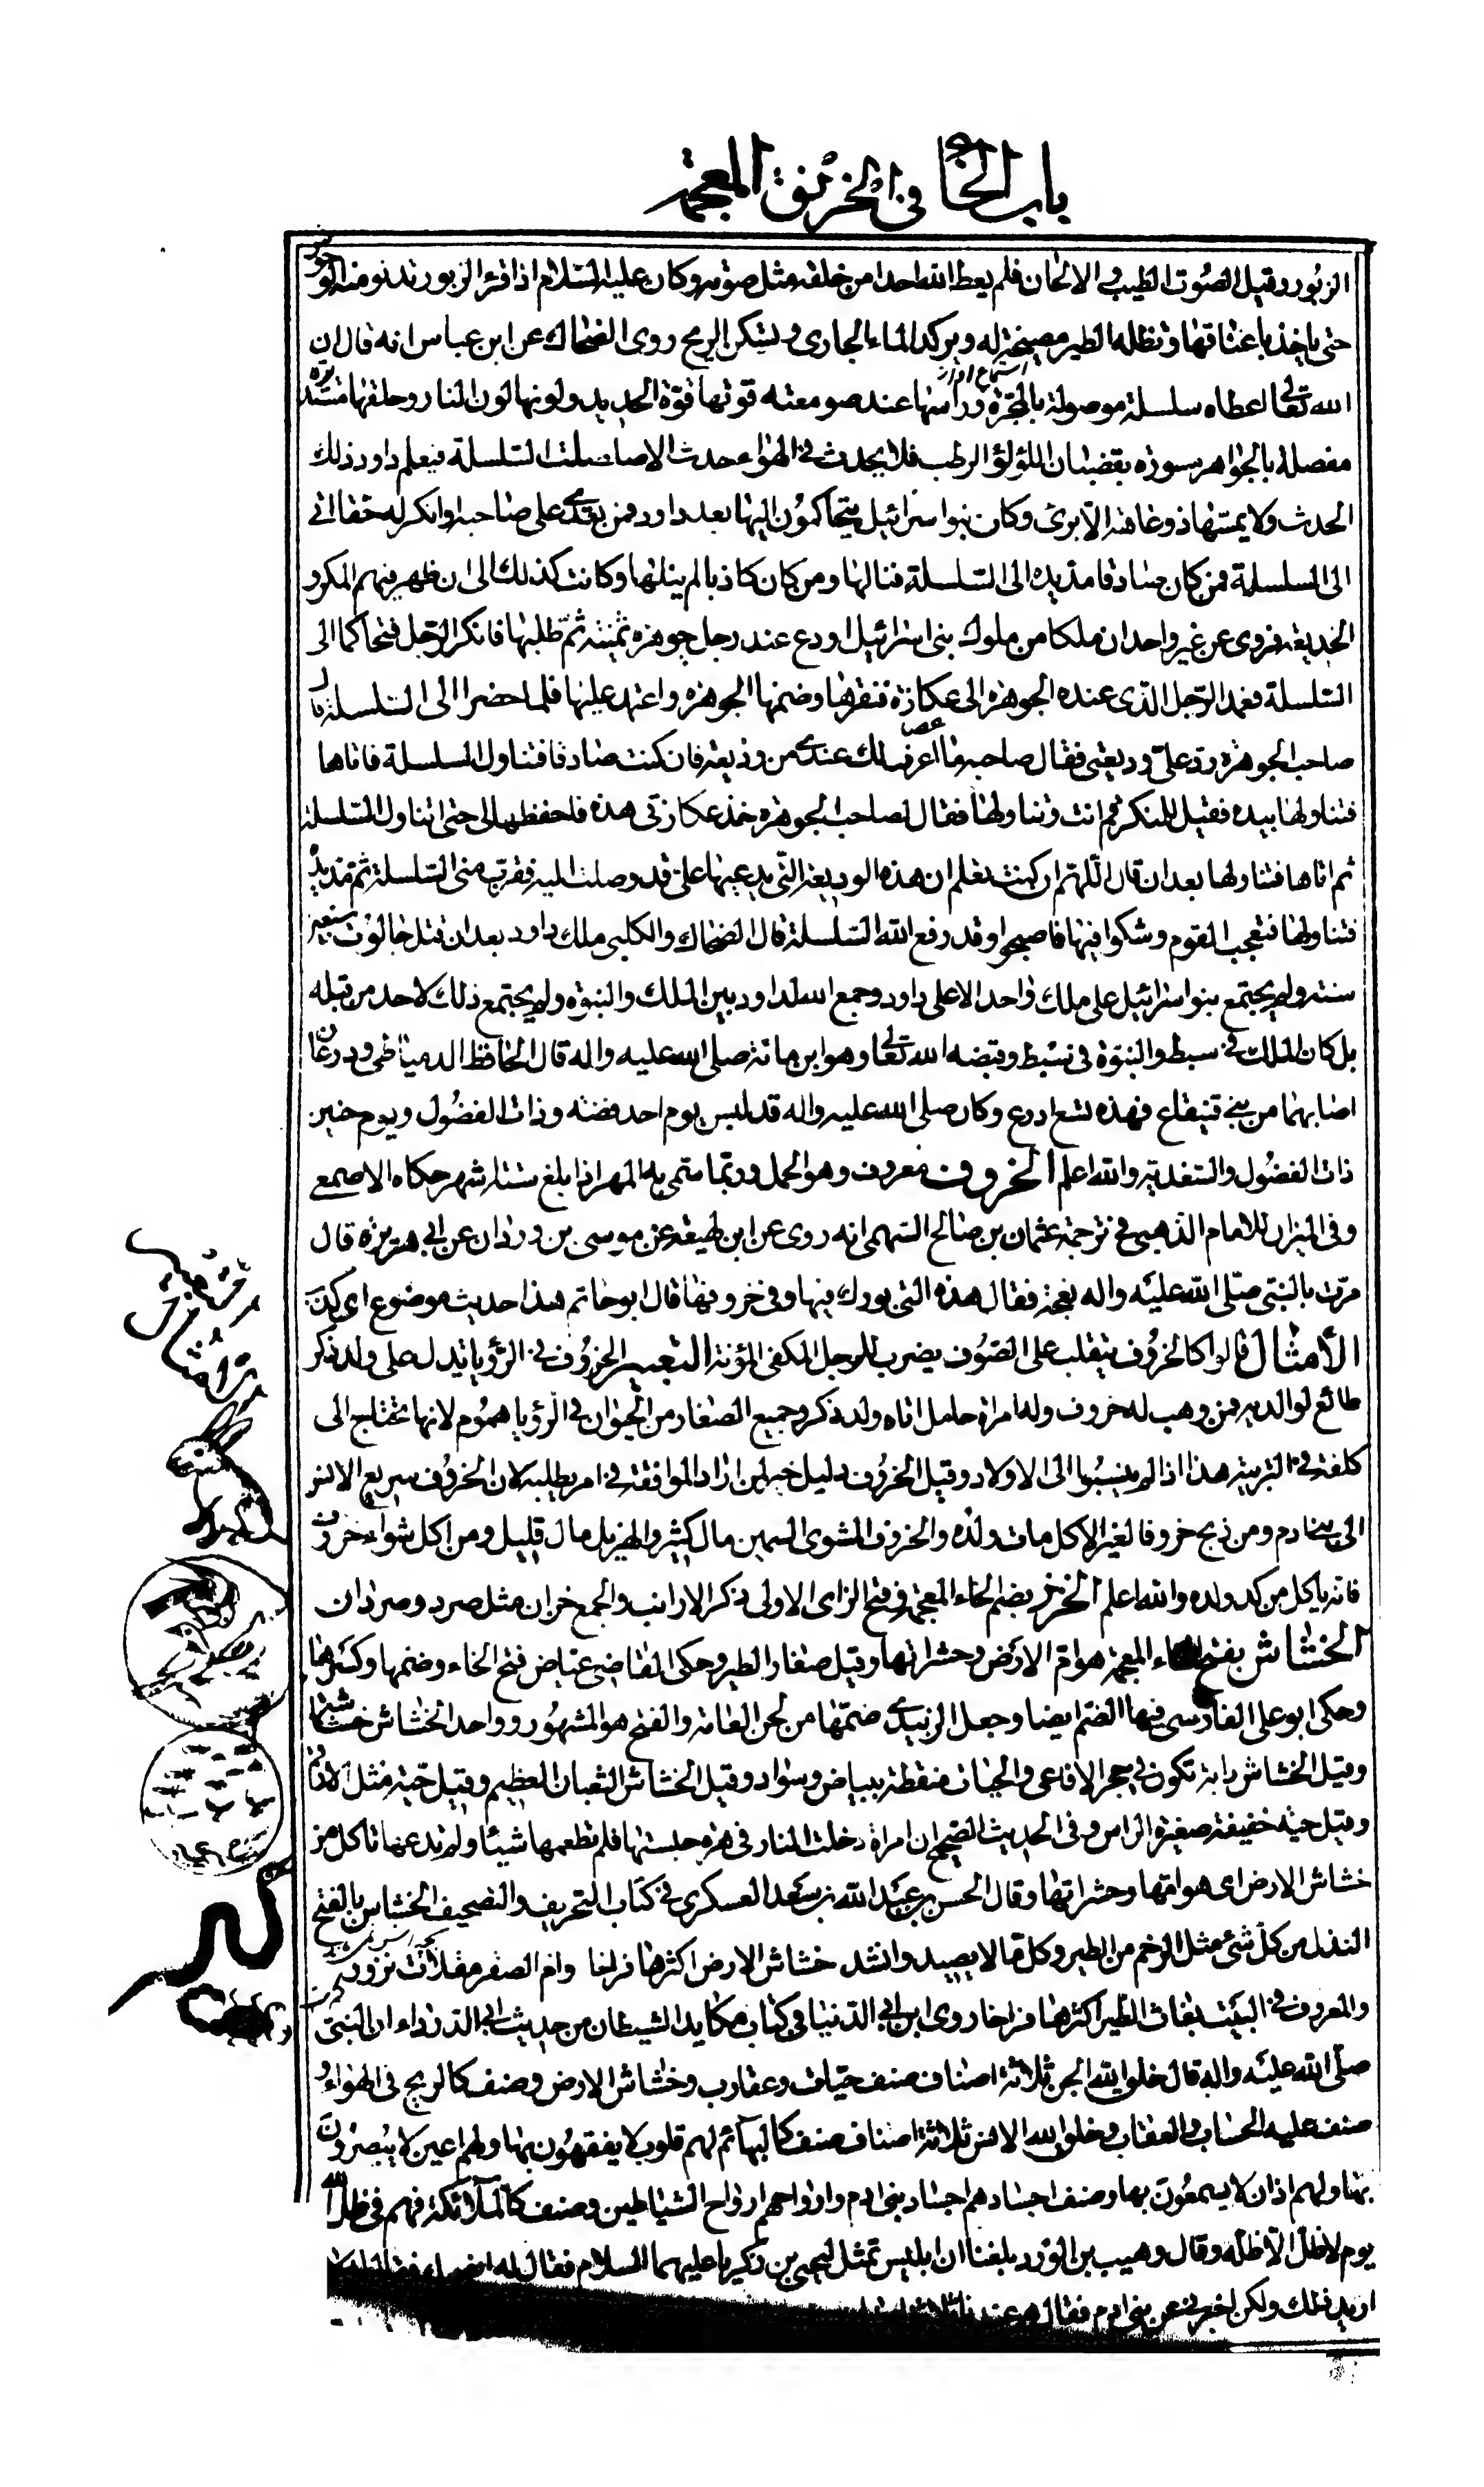 باب الخاء في الخرنق المعجمة
الزبور وقيل الصوت الطيب والالحان فلم يعط الله احدا من خلقه مثل صوته وكان عليه السلام اذا قرء الزبور تدنو منه الوحوش
حتى ياخذ باعناقها وتظله الطير مصيخة له ويركد الماء الجاري وتسكن الريح روى الضحاك عن ابن عباس انه قال ان
الله تعالى اعطاه سلسلة موصولة بالمجرة وراسها عند صومعته قوتها قوة الحديد ولونها لون النار وحلقها مستديرة
مفصلة بالجواهر مسورة بقضبان اللؤلؤ الرطب فلا يحدث في الهواء حدث الا صلصلت السلسلة فيعلم داود ذلك
الحدث ولا يمسها ذو عاهة الا برئ وكان بنوا سرائيل يتحاكمون اليها بعد داود فمن تعدى على صاحبه او انكر له حقا اتى
الى السلسلة فمن كان صادقا مد يده الى السلسلة فنالها ومن كان كاذبا لم ينلها وكانت كذلك الى ان ظهر فيهم المكر و
الخديعة فروى عن غير واحد ان ملكا من ملوك بني اسرائيل اودع عند رجل جوهرة ثمينة ثم طلبها فانكر الرجل فتحاكما الى
السلسلة فعمد الرجل الذي عنده الجوهرة الى عكازة فنقرها وضمنها الجوهرة واعتمد عليها فلما حضرا الى السلسلة قال
صاحب الجوهرة رد علي وديعتي فقال صاحبه ما اعرف لك عندي من وديعة فان كنت صادقا فتناول السلسلة فاتاها
فتناولها بيده فقيل للمنكر قم انت وتناولها فقال لصاحب الجوهرة خذ عكازتي هذه فاحفظها لي حتى اتناول السلسلة
ثم اتاها فتناولها بعد ان قال اللهم ان كنت تعلم ان هذه الوديعة التي يدعيها علي قد وصلت اليه فقرب مني السلسلة ثم مد يده
فتناولها فتعجب القوم وشكوا فيها فاصبحوا وقد رفع الله السلسلة قال الضحاك والكلبي ملك داود بعد ان قتل جالوت سبعين
سنة ولم يجتمع بنوا سرائيل على ملك واحد الا على داود وجمع الله لداود بين الملك والنبوة ولم يجتمع ذلك لاحد من قبله
بل كان الملك في سبط والنبوة في سبط وقبضه الله تعالى وهو ابن مائة صلى الله عليه واله قال الحافظ الدمياطي ودرعان
اصابهما من بني قينقاع فهذه تسع ادرع وكان صلى الله عليه واله قد لبس يوم احد فضة وذات الفضول ويوم حنين
ذات الفضول والسغدية والله اعلم الخروف معروف وهو الحمل وربما سمي به المهر اذا بلغ ستة اشهر حكاه الاصمعي
وفي الميزان للامام الذهبي في ترجمة عثمان بن صالح السهمي انه روى عن ابن لهيعة عن موسى بن وردان عن ابي هريرة قال
مرت بالنبي صلى الله عليه واله نعجة فقال هذه التي بورك فيها وفي خروفها قال ابو حاتم هذا حديث موضوع اي كذب
الأمثال قالوا كالخروف يتقلب على الصوف يضرب للرجل المكفي المؤنة التعبير الخروف في الرؤيا يدل على ولد ذكر
طائع لوالديه فمن وهب له خروف وله امراة حامل اتاه ولد ذكر وجميع الصغار من الحيوان في الرؤيا هموم لانها تحتاج الى
كلفة في التربية هذا اذا لم ينسبوا الى الاولاد وقيل الخروف دليل خير لمن اراد الموافقة في امر يطلبه لان الخروف سريع الانس
الى بني ادم ومن ذبح خروفا لغير الاكل مات ولده والخروف المشوي السمين مال كثير والهزيل مال قليل ومن اكل شواء خروف
فانه ياكل من كد ولده والله اعلم الخزز بضم الخاء المعجمة وفتح الزاى الاولى ذكر الارانب والجمع خزان مثل صرد وصردان
الخشاش بفتح الخاء المعجمة هوام الارض وحشراتها وقيل صغار الطير وحكى القاضي عياض فتح الخاء وضمها وكسرها
وحكى ابو علي الفارسي فيها الضم ايضا وجعل الزبيدي ضمها من لحن العامة والفتح هو المشهور وواحد الخشاش خشاشة
وقيل الخشاش دابة تكون في جحر الافاعي والحيات منقطة ببياض وسواد وقيل الخشاش الثعبان العظيم وقيل حية مثل الارقم
وقيل حية خفيفة صغيرة الراس وفي الحديث الصحيح ان امراة دخلت النار في هرة حبستها فلم تطعمها شيئا ولم تدعها تاكل من
خشاش الارض اى هوامها وحشراتها وقال الحسن بن عبد الله بن سعد العسكري في كتاب التحريف والتصحيف الخشاش بالفتح
النذل من كل شئ مثل الرخم من الطير وكل ما لا يصيد وانشد خشاش الارض اكثرها فراخا وام الصقر مقلات نزور
والمعروف في البيت بغاث الطير اكثرها فراخا روى ابن ابي الدنيا في كتاب مكايد الشيطان من حديث ابي الدرداء ان النبي
صلى الله عليه واله قال خلق الله الجن ثلاثة اصناف صنف حيات وعقارب وخشاش الارض وصنف كالريح في الهواء و
صنف عليه الحساب والعقاب وخلق الله الانس ثلاثة اصناف صنف كالبهائم لهم قلوب لا يفقهون بها ولهم اعين لا يبصرون
بها ولهم اذان لا يسمعون بها وصنف اجسادهم اجساد بني ادم وارواحهم ارواح الشياطين وصنف كالملائكة فهم في ظل الله
يوم لا ظل الا ظله وقال وهيب بن الورد بلغنا ان ابليس تمثل ليحيى بن زكريا عليهما السلام فقال له
اريد ذلك ولكن اخبرني عن بني ادم فقال هم عندنا ثلاثة